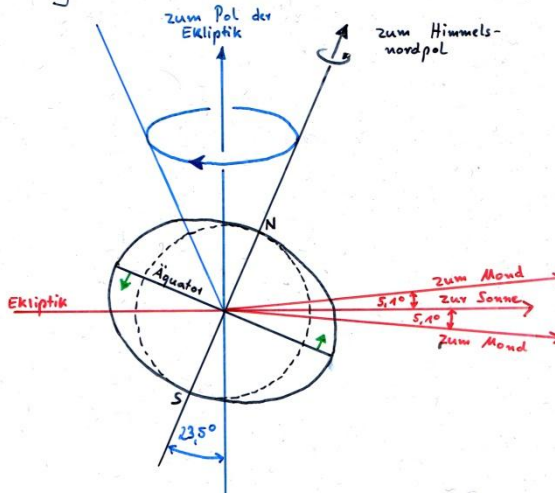 zum Pol der
Ekliptik
zum Himmels-
nordpol
N
Äquator
Ekliptik
zum Mond
5,1°
zur Sonne
5,1°
zum Mond
S
23,5°